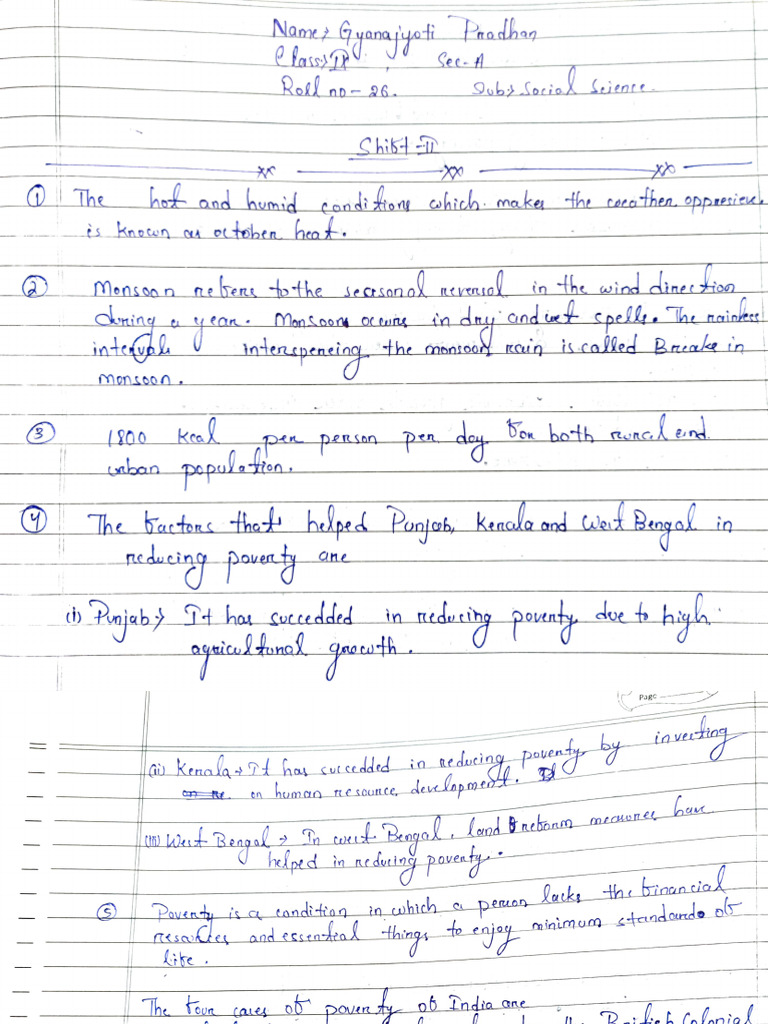 Name→ Gyanajyoti Pradhan
Class→IX, Sec-A
Roll no-26. Sub→Social Science
Shift-II
① The hot and humid conditions which makes the weather oppresieve
is known as october heat.
② Monsoon refers to the seasonal reversal in the wind direction
during a year. Monsoons occurs in dry and wet spells. The rainless
intervals interspereing the monsoon rain is called Breake in
monsoon.
③ 1800 kcal per person per day for both rural and
urban population.
④ The factors that helped Punjab, Kerala and West Bengal in
reducing poverty are
(i) Punjab→ It has succedded in reducing poverty due to high
agricultural growth.
PAGE
(ii) Kerala→ It has succedded in reducing poverty by investing
on human resource, development.
(iii) West Bengal → In west Bengal, land reform measures have
helped in reducing poverty.
⑤ Poverty is a condition in which a person lacks the financial
resources and essential things to enjoy minimum standards of
life.
The four cases of poverty of India are
British Colonial